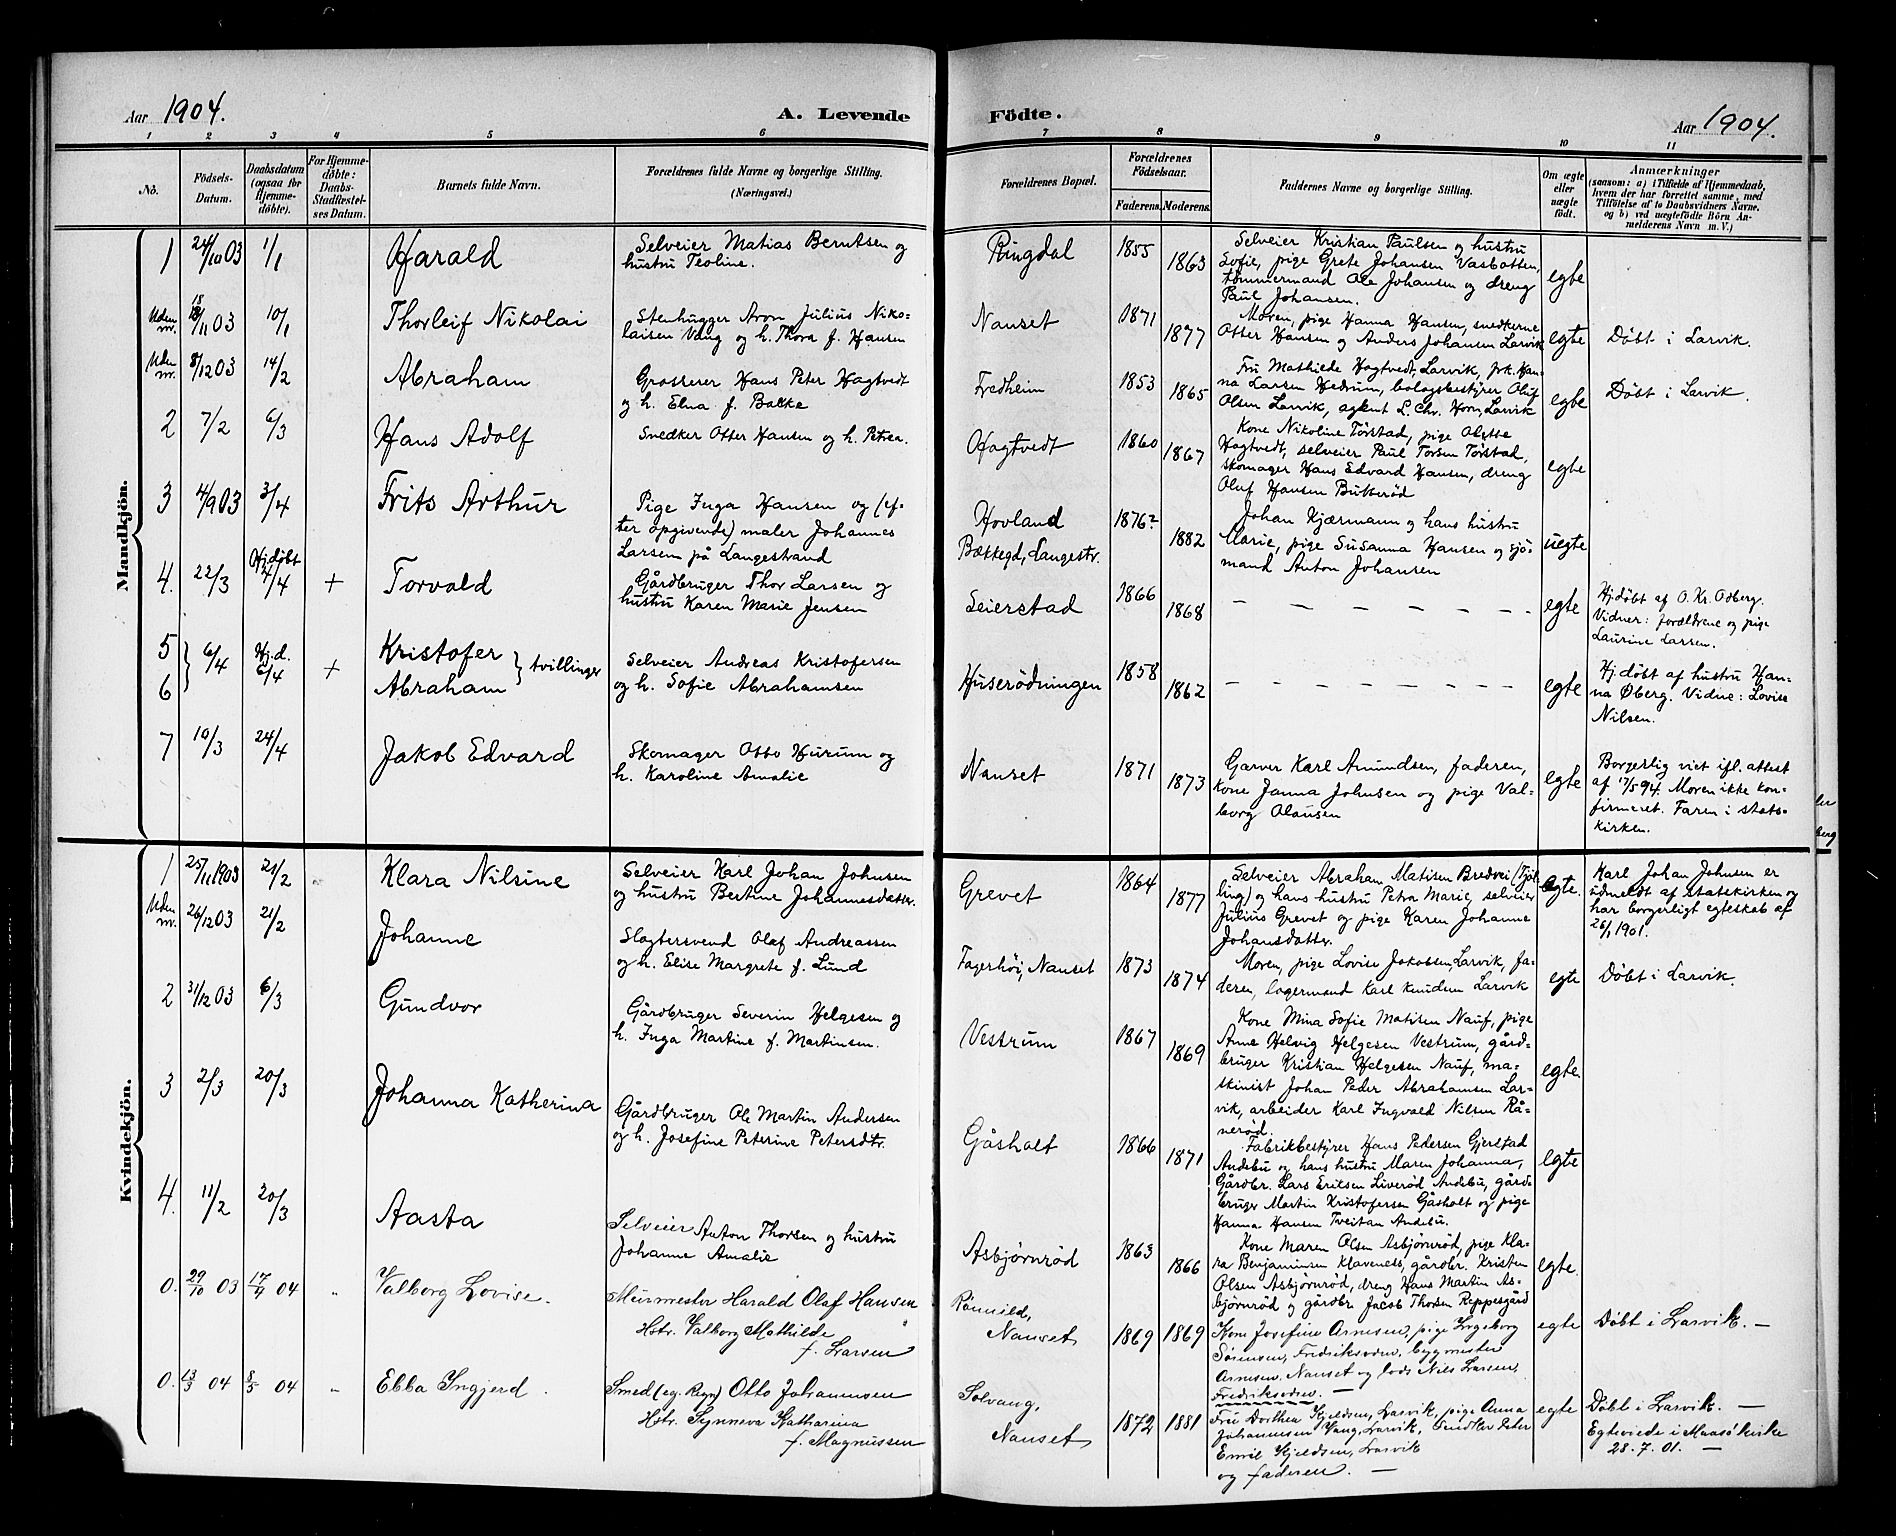 Aar 1904.
A. Levende Födte.
Aar 1904.
1 2 3 4 5 6 7 8 9 10 11
No.
Födsels-
Datum.
Daabsdatum
(ogsaa for
Hjemme-
döbte).
For Hjemme-
döbte:
Daabs-
Stadfæstel-
ses Datum.
Barnets fulde Navn.
Forældrenes fulde Navne og borgerlige Stilling.
(Næringsvei.)
Forældrenes Bopæl.
Forældrenes
Födselsaar.
Faderens. Moderens.
Faddernes Navne og borgerlige Stilling.
Om ægte
eller
uægte
födt.
Anmærkninger
(saasom: a) i Tilfælde af Hjemmedaab,
hvem der har forrettet samme, med
Tilföielse af to Daabsvidners Navne,
og b) ved uægtefödte Börn An-
melderens Navn m. V.)
Mandkjön.
1 24/10 03 1/1 Harald
Selveier Matias Berntsen og
hustru Teoline.
Ringdal 1855 1863
Selveier Kristian Paulsen og hustru
Sofie, pige Grete Johansen Vasbotten,
tømmermand Ole Johansen og dreng
Paul Johansen.
egte
Uden
nr. 18/11 03 10/1 Thorleif Nikolai
Stenhugger Aron Julius Niko-
laisen Vang og h. Thora f. Hansen
Nanset 1871 1877
Moren, pige Hanna Hansen, snedkerne
Otter Hansen og Anders Johansen Larvik
egte Døbt i Larvik.
Uden
nr. 8/12 03 14/2 Abraham
Grosserer Hans Peter Hagtvedt
og h. Elna f. Bakke
Fredheim 1853 1865
Fru Mathilde Hagtvedt, Larvik, frk. Han-
na Larsen Hedrum, bolagsbestyrer Oluf
Olsen Larvik, agent L. Chr. Horn, Larvik
egte Døbt i Larvik.
2 7/2 6/3 Hans Adolf
Snedker Otter Hansen og h. Petrea.
Hagtvedt 1860 1867
Kone Nikoline Törstad, pige Olette
Hagtvedt, selveier Paul Torsen Törstad,
skomager Hans Edvard Hansen, dreng
Oluf Hansen Bukserød
egte
3 4/9 03 3/4 Frits Arthur
Pige Inga Hansen og (ef-
ter opgivende) maler Johannes
Larsen på Langestrand
Hovland
Bækkegd, Langestr. 1876? 1882
Johan Kjærmann og hans hustru
Marie, pige Susanna Hansen og sjö-
mand Anton Johansen
uegte
4. 22/3 Hj.døbt
4/4 + Torvald
Gårdbruger Thor Larsen og
hustru Karen Marie Jensen
Seierstad 1866 1868
– – – – – – –
egte
Hj.døbt af O. Kr. Odberg.
Vidner: forældrene og pige
Laurine Larsen.
5
6 6/4 Hj.d.
6/4 + Kristofer
Abraham } tvillinger
Selveier Andreas Kristofersen
og h. Sofie Abrahamsen
Huserødningen 1858 1862
– – – – – – – –
egte
Hj.døbt af hustru Han-
na Øberg. Vidne: Lovise
Nilsen.
7 10/3 24/4 Jakob Edvard
Skomager Otto Hurum og
h. Karoline Amalie
Nanset 1871 1873
Garver Karl Amundsen, faderen,
kone Janna Johnsen og pige Val-
borg Olausen
egte
Borgerlig viet ifl. attest
af 17/5 94. Moren ikke kon-
firmeret. Faren i stats-
kirken.
Kvindekjön.
1 25/11 1903 21/2 Klara Nilsine
Selveier Karl Johan Johnsen
og hustru Bertine Johannesdatter.
Grevet 1864 1877
Selveier Abraham Matisen Bredvei (Tjøl-
ling) og hans hustru Petra Marie, selveier
Julius Grevet og pige Karen Johanne
Johansdatter.
egte.
Karl Johan Johnsen er
udmeldt af statskirken og
har borgerligt egteskab af
26/1 1901.
Uden
nr. 26/12 03 21/2 Johanne
Slagtersvend Olaf Andreassen
og h. Elise Margrete f. Lund
Fagerhöi, Nanset 1873 1874
Moren, pige Lovise Jakobsen, Larvik, fa-
deren, lagermand Karl Knudsen Larvik
egte Døbt i Larvik.
2 31/12 03 6/3 Gundvor
Gårdbruger Severin Helgesen og
h. Inga Martine f. Martinsen.
Vestrum 1867 1869
Kone Mina Sofie Matisen Nauf, pige
Anne Helvig Helgesen Vestrum, gård-
bruger Kristian Helgesen Nauf, ma-
skinist Johan Peder Abrahamsen Lar-
vik, arbeider Karl Ingvald Nilsen Rå-
nerød.
egte.
3 2/3 20/3 Johanna Katherina
Gårdbruger Ole Martin Andersen
og h. Josefine Peterine Petersdtr.
Gåsholt 1866 1871
Fabrikbestyrer Hans Pedersen Gjerstad
Andebu og hans hustru Maren Johanna,
Gårdbr. Lars Eriksen Liverød Andebu, gård-
bruger Martin Kristofersen Gåsholt og pige
Hanna Hansen Tveitan Andebu.
egte
4. 11/2 20/3 Aasta
Selveier Anton Thorsen og hustru
Johanne Amalie
Asbjørnrød 1863 1866
Kone Maren Olsen Asbjørnrød, pige Kla-
ra Benjaminsen Klavenes, gårdbr. Kristen
Olsen Asbjørnrød, dreng Hans Martin As-
bjørnrød og gårdbr. Jacob Thorsen Reppesgård
egte.
0. 29/10 03 17/4 04 „ Valborg Lovise.
Murmester Harald Olaf Hansen
Hstr. Valborg Mathilde
f. Larsen
Nanset 1869 1869
Kone Josefine Arnesen, pige Ingeborg
Sørensen, Fredriksværn, bygmester
Arnesen, Nanset og lods Nils Larsen,
Fredriksværn. –
egte Døbt i Larvik. –
0. 13/3 04 8/5 04 „ Ebba Ingjerd.
Smed (eg. Regn) Otto Johannesen
Hstr. Synneva Katharina
f. Magnussen
Solvang,
Nanset 1872 1881
Fru Dorthea Kjeldsen, Larvik, pige Anna
Johannesen Vang, Larvik, Peter
Emil Kjeldsen, Larvik
og faderen. –
egte
Døbt i Larvik. –
Egteviede i Maasö kirke
28.7.01. –